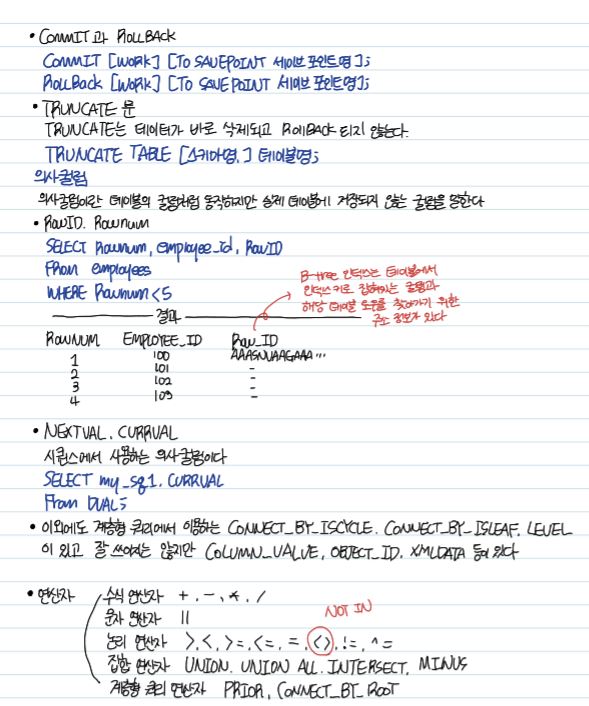 • COMMIT과 ROLLBACK
COMMIT [WORK] [TO SAVEPOINT 세이브 포인트명];
ROLLBACK [WORK] [TO SAVEPOINT 세이브 포인트명];
• TRUNCATE 문
TRUNCATE는 데이터가 바로 삭제되고 ROllBACK 되지 않는다.
TRUNCATE TABLE [스키마명.] 테이블명;
의사컬럼
의사컬럼이란 테이블의 컬럼처럼 동작하지만 실제 테이블에 저장되지 않는 컬럼을 말한다
• ROWID. Rownum
SELECT Rownum, employee_Id, ROWID
From employees
WHERE Rownum<5
B-tree 인덱스는 테이블에서
인덱스 키로 잡혀있는 컬럼과
해당 테이블 로우를 찾아가기 위한
주소 정보가 있다
결과
ROWNUM EMPLOYEE_ID Row_ID
1 100 AAASNUAAGAAA…
2 101 -
3 102 -
4 103 -
• NEXTVAL. CURRVAL
시퀀스에서 사용하는 의사컬럼이다
SELECT my_sq1. CURRVAL
From DUAL;
• 이외에도 계층형 쿼리에서 이용하는 CONNECT_BY_ISCYCLE. CONNECT_BY_ISLEAF. LEVEL
이 있고 잘 쓰이지는 않지만 COLUMN_VALUE, OBJECT_ID. XMLDATA 등이 있다
• 연산자 수식 연산자 +. -. *. /
문자 연산자 ||
NOT IN
논리 연산자 >. <. >=. <=. =. <>. !=. ^=
집합 연산자 UNION. UNION ALL. INTERSECT. MINUS
계층형 쿼리 연산자 PRIOR, CONNECT_BY_ROOT